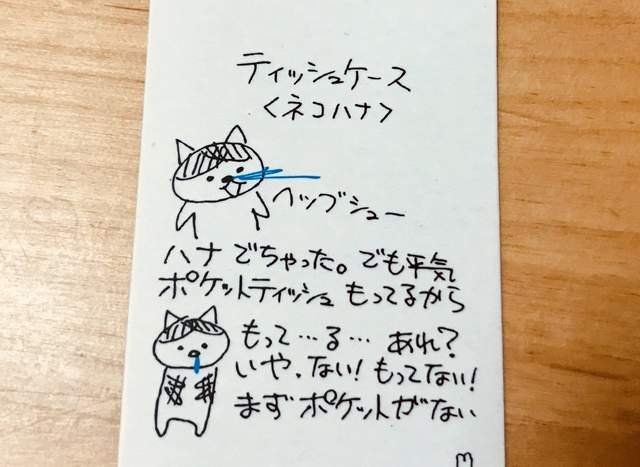 ティッシュケース
<ネコハナ>
ヘップシュー
ハナ でちゃった。でも平気
ポケットティッシュ もってるから
もって…る… あれ?
いや、ない! もってない!
まず ポケットがない